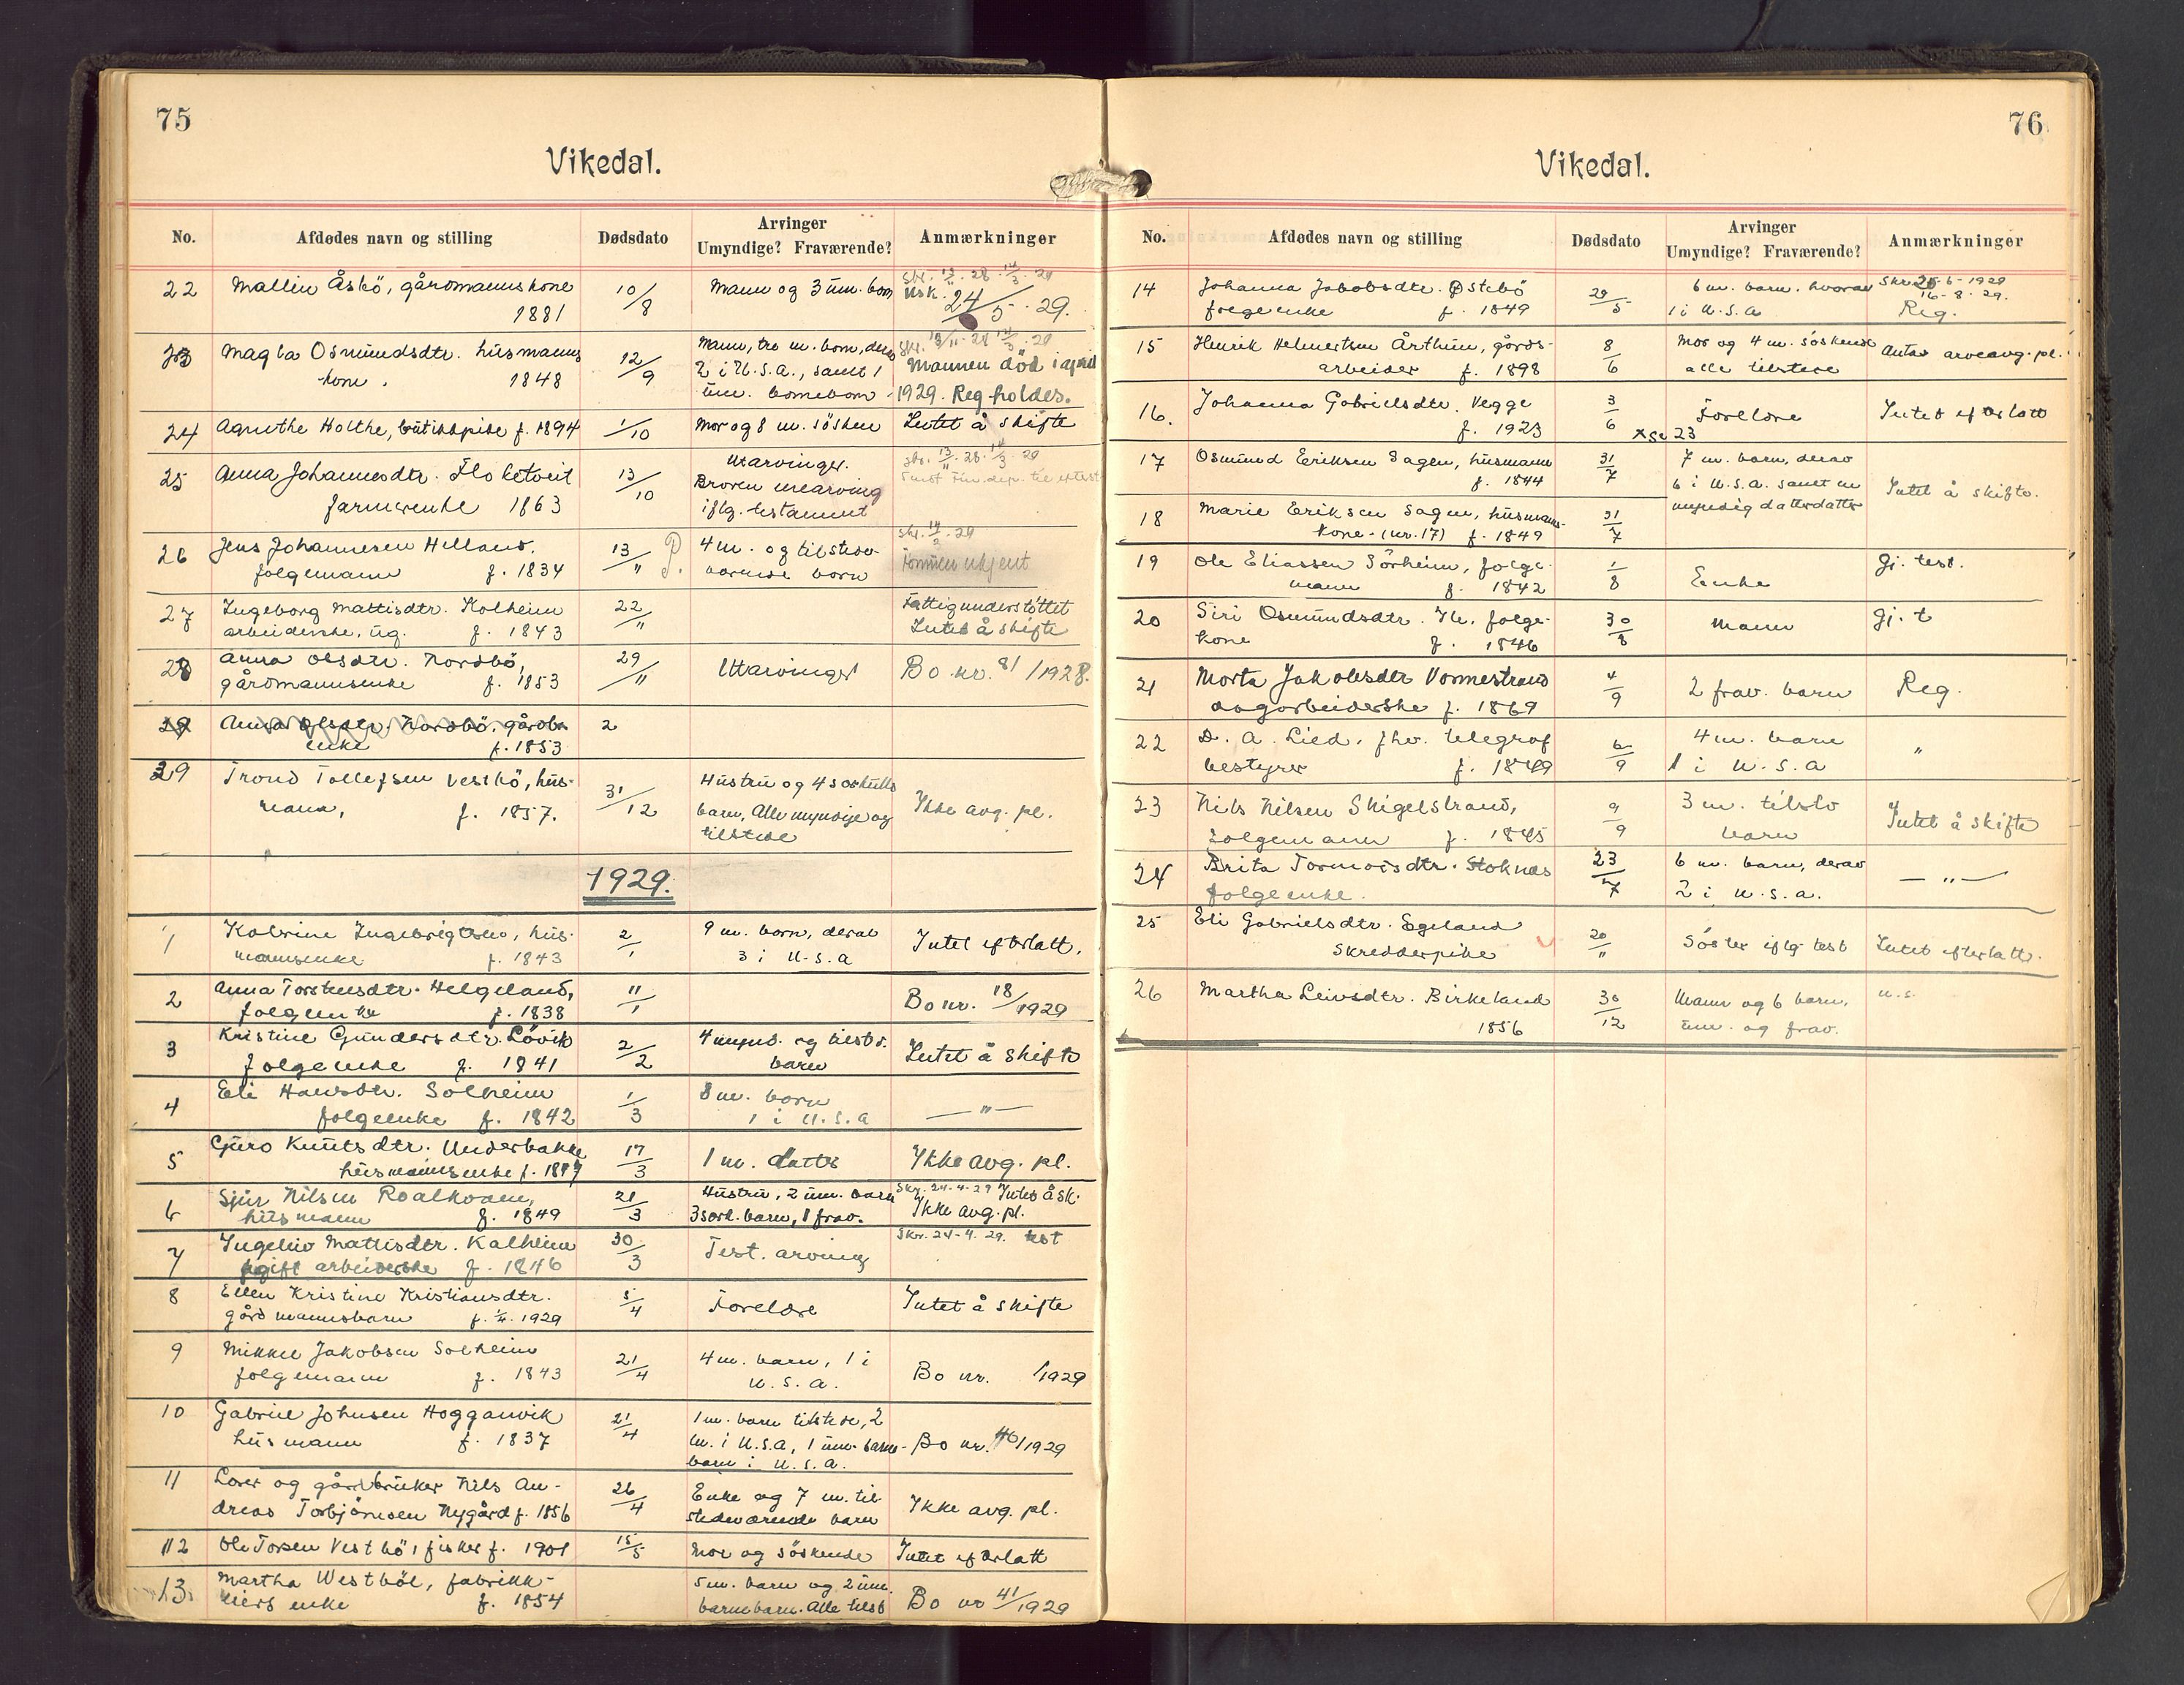 75
Vikedal.
No. Afdødes navn og stilling Dødsdato Arvinger Umyndige? Fraværende? Anmærkninger
22 Mallin Åsbö, gårdmannskone 10/8 Mann og 3 um. born
1881 24/5 - 29.
23 Magla Osmundsdtr. husmanns 12/9 Mann, tre m. born, derav
kone. 1848 2 i U.S.A., samt 1 Mannen död i april
um. barnebarn 1929. Reg. holdes.
24 Agnethe Holthe, butikkpike f. 1894 1/10 Mor og 8 m. sösken Intet å skifte
25 Anna Johannesdtr. Flo 13/10 Utarvinger.
farmerenke 1863 Broren enearving
iflg. testament
26 Jens Johannesen Helland, 13/" 4 m. og tilstede-
folgemann f. 1834 værende born
27 Ingeborg Mattisdtr. Kolheim 22/" Fattigunderstöttet
arbeiderske, ug. f. 1843 Intet å skifte
28 Anna Olsdtr. Nordbö, 29/" Utarvinger Bo nr. 81/1928.
gårdmannsenke f. 1853
29 Anna Olsdtr. Nordbö, gårdbr. 2
enke f. 1853
29 Trond Tollefsen Vestbö, hus- 31/12 Hustru og 4 særkulls
mann, f. 1857. barn, Alle myndige og Ikke avg. pl.
tilstede
1929.
1 Katrine Ingebrigtsen, hus- 2/1 9 m. born, derav Intet efterlatt.
mannsenke f. 1843 3 i U.S.A
2 Anna Torstensdtr. Helgeland, 11/1 Bo nr. 18/1929
folgeenke f. 1838
3 Kristine Gundersdtr. Lövik 2/2 4 mynd. og tilsted. Intet å skifte
folgeenke f. 1841 barn
4 Eli Hansdtr. Solheim 1/3 8 m. born — " —
folgeenke f. 1842 1 i U.S.A
5 Guro Knutsdtr. Underbakke 17/3 1 m. datter Ikke avg. pl.
husmannsenke f. 1847
6 Sjur Nilsen Roalkvam, 21/3 Hustru, 2 um. barn Skr. 24-4-29 Intet å sk.
husmann f. 1849 3 særk. barn, 1 frav. Ikke avg. pl.
7 Ingeliv Mattisdtr. Kalheim 30/3 Test. arving Skr. 24-4-29. test
ugift arbeiderske f. 1846
8 Ellen Kristine Kristiansdtr. 5/4 Foreldre Intet å skifte
gårdmannsbarn f. 1/4. 1929
9 Mikkel Jakobsen Solheim 21/4 4 m. barn, 1 i Bo nr. /1929
folgemann f. 1843 U.S.A.
10 Gabriel Johnsen Hogganvik 21/4 1 m. barn tilstede, 2
husmann f. 1837 m. i U.S.A, 1 um. barne- Bo nr. 40/1929
barn i U.S.A.
11 Lærer og gårdbruker Nils An- 26/4 Enke og 7 m. til- Ikke avg. pl.
dreas Torbjörnsen Nygård f. 1856 stedeværende barn
12 Ole Torsen Vestbö, fisker f. 1901 15/5 Mor og söskende Intet efterlatt
13. Martha Westböe, fabrikk- 5 m. barn og 2 um. Bo nr 41/1929
eiers enke f. 1854 barnebarn. Alle tilst
76
Vikedal.
No. Afdødes navn og stilling Dødsdato Arvinger Umyndige? Fraværende? Anmærkninger
14 Johanna Jakobsdtr. Østebö 29/5 6 m. barn. hvorav
folgeenke f. 1849 1 i U.S.A 16-8-29. Reg.
15 Henrik Helmertsen Århun, gårds- 8/6 Mor og 4 m. söskende Antas arveavg. pl.
arbeider f. 1898 alle tilstede
16. Johanna Gabrielsdtr. Vegge 3/6 Foreldre Intet efterlatt
f. 1923 x se 23
17 Osmund Eriksen Sagen, husmann 31/7 7 m. barn, derav
f. 1844 6 i U.S.A. samt um Intet å skifte.
18 Marie Eriksen Sagen, husmanns- 31/7 myndig datterdatter
kone. (nr. 17) f. 1849
19 Ole Eliassen Sörheim, folge- 1/8 Enke Gj. test.
mann f. 1842
20 Siri Osmundsdtr. folge- 30/8 Mann Gj. t
kone f. 1846
21 Morta Jakobsdtr Vormestrand 4/9 2 frav. barn Reg.
dagarbeiderske f. 1869
22 D. A. Lied, fhv. telegraf 6/9 4 m. barn "
bestyrer f. 1849 1 i U.S.A
23 Nils Nilsen Skigelstrand, 9/9 3 m. tilste Intet å skifte
folgemann f. 1845 barn
24 Brita Tormodsdtr. Stoknes 23/7 6 m. barn, derav — " —
folgeenke. 2 i U.S.A.
25 Eli Gabrielsdtr. Egeland 20/" Söster iflg. test Intet efterlatt.
Skredderpike
26 Martha Leivsdtr. Birkeland 30/12 Mann og 6 barn, u.s.
1856 um. og frav.